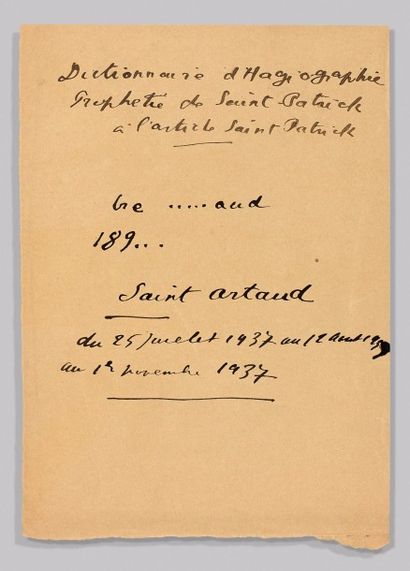 Dictionnaire d'Hagiographie
Prophetie de Saint Patrick
à l'article Saint Patrick
bre ..... aud
189...
Saint Artaud
du 25 Juillet 1937 au 12 Aout
au 1er novembre 1937